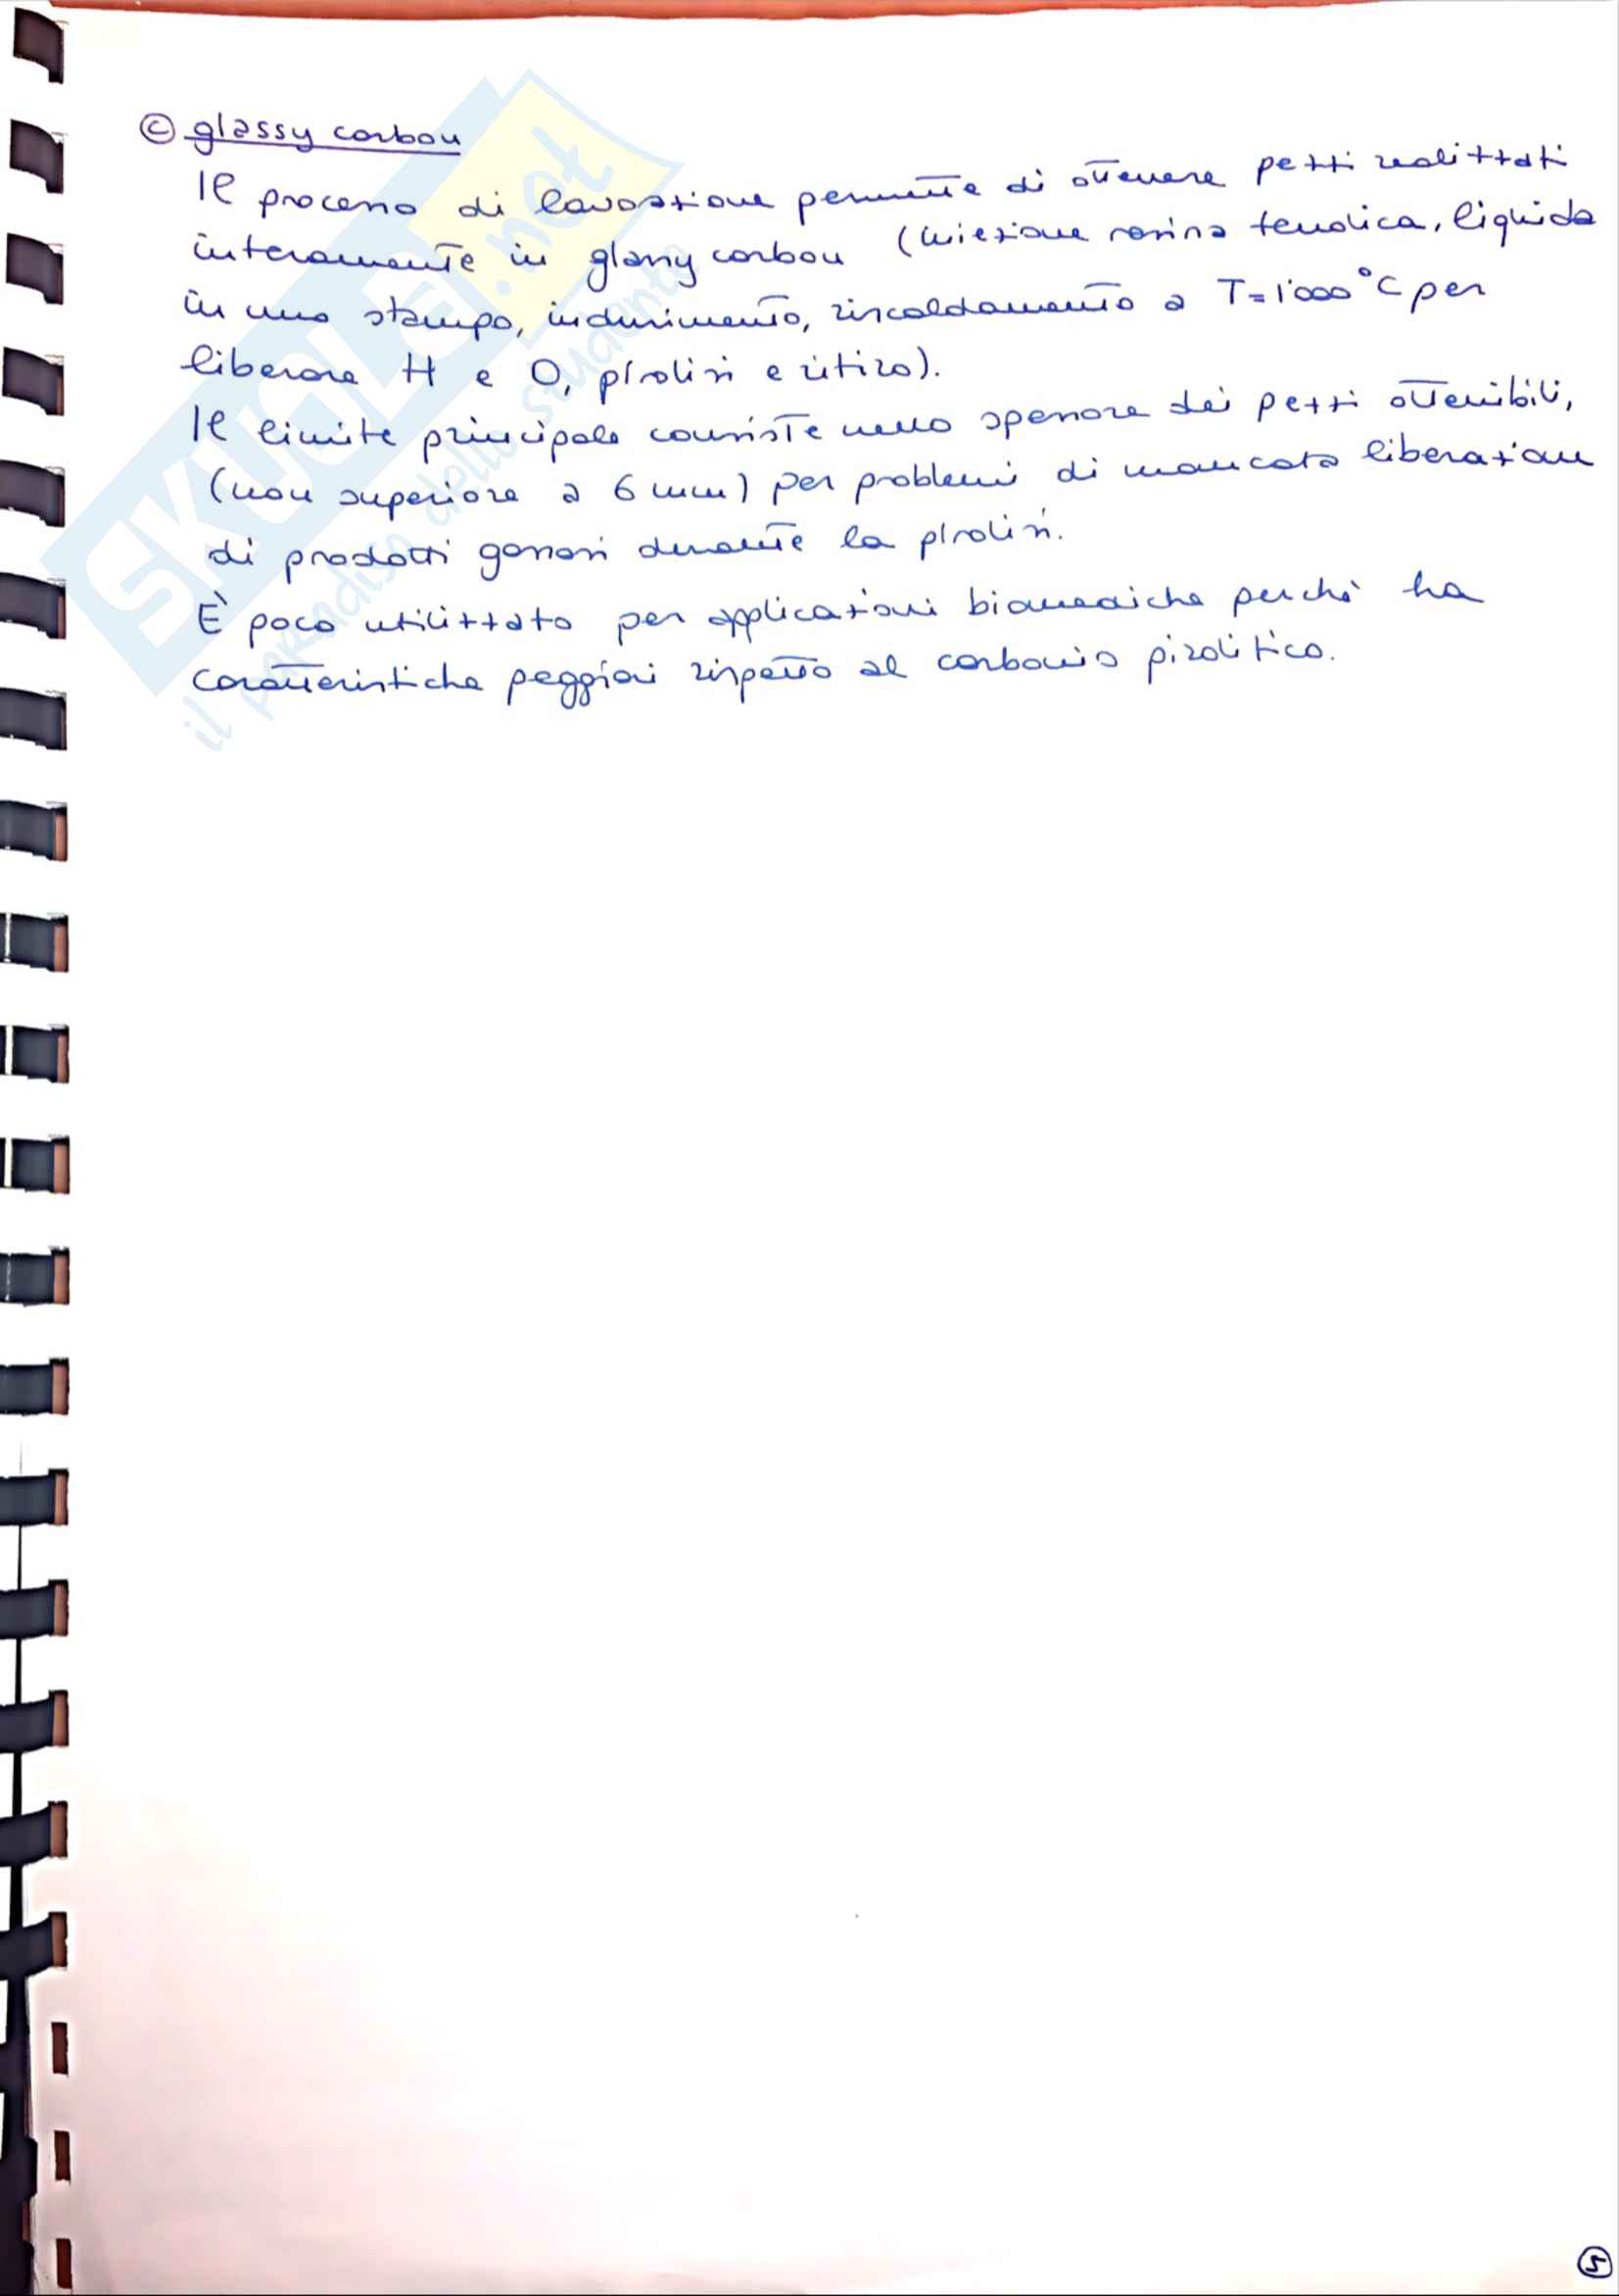 © glassy carbon
Il processo di lavorazione permette di ottenere pezzi realizzati
interamente in glassy carbon (iniezione resina fenolica, liquida
in uno stampo, indurimento, riscaldamento a T=1'000°C per
liberare H e O, pirolisi e ritiro).
Il limite principale consiste nello spessore dei pezzi ottenibili,
(non superiore a 6 mm) per problemi di mancata liberazione
di prodotti gassosi durante la pirolisi.
È poco utilizzato per applicazioni biomediche perché ha
caratteristiche peggiori rispetto al carbonio pirolitico.
SKUOLA.net
il paradiso dello studente
5